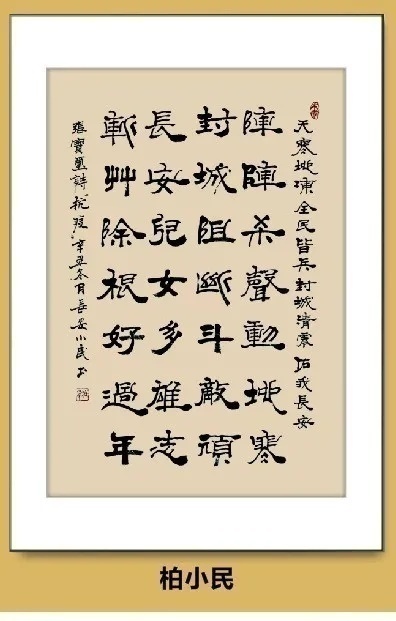 天寒地凍全民皆兵封城清零佑我長安
陣陣杀聲動地寒
封城阻斷斗敵頑
長安兒女多雄志
斬艸除根好過年
寶璽詩抗疫辛丑冬月長安小民书
柏小民